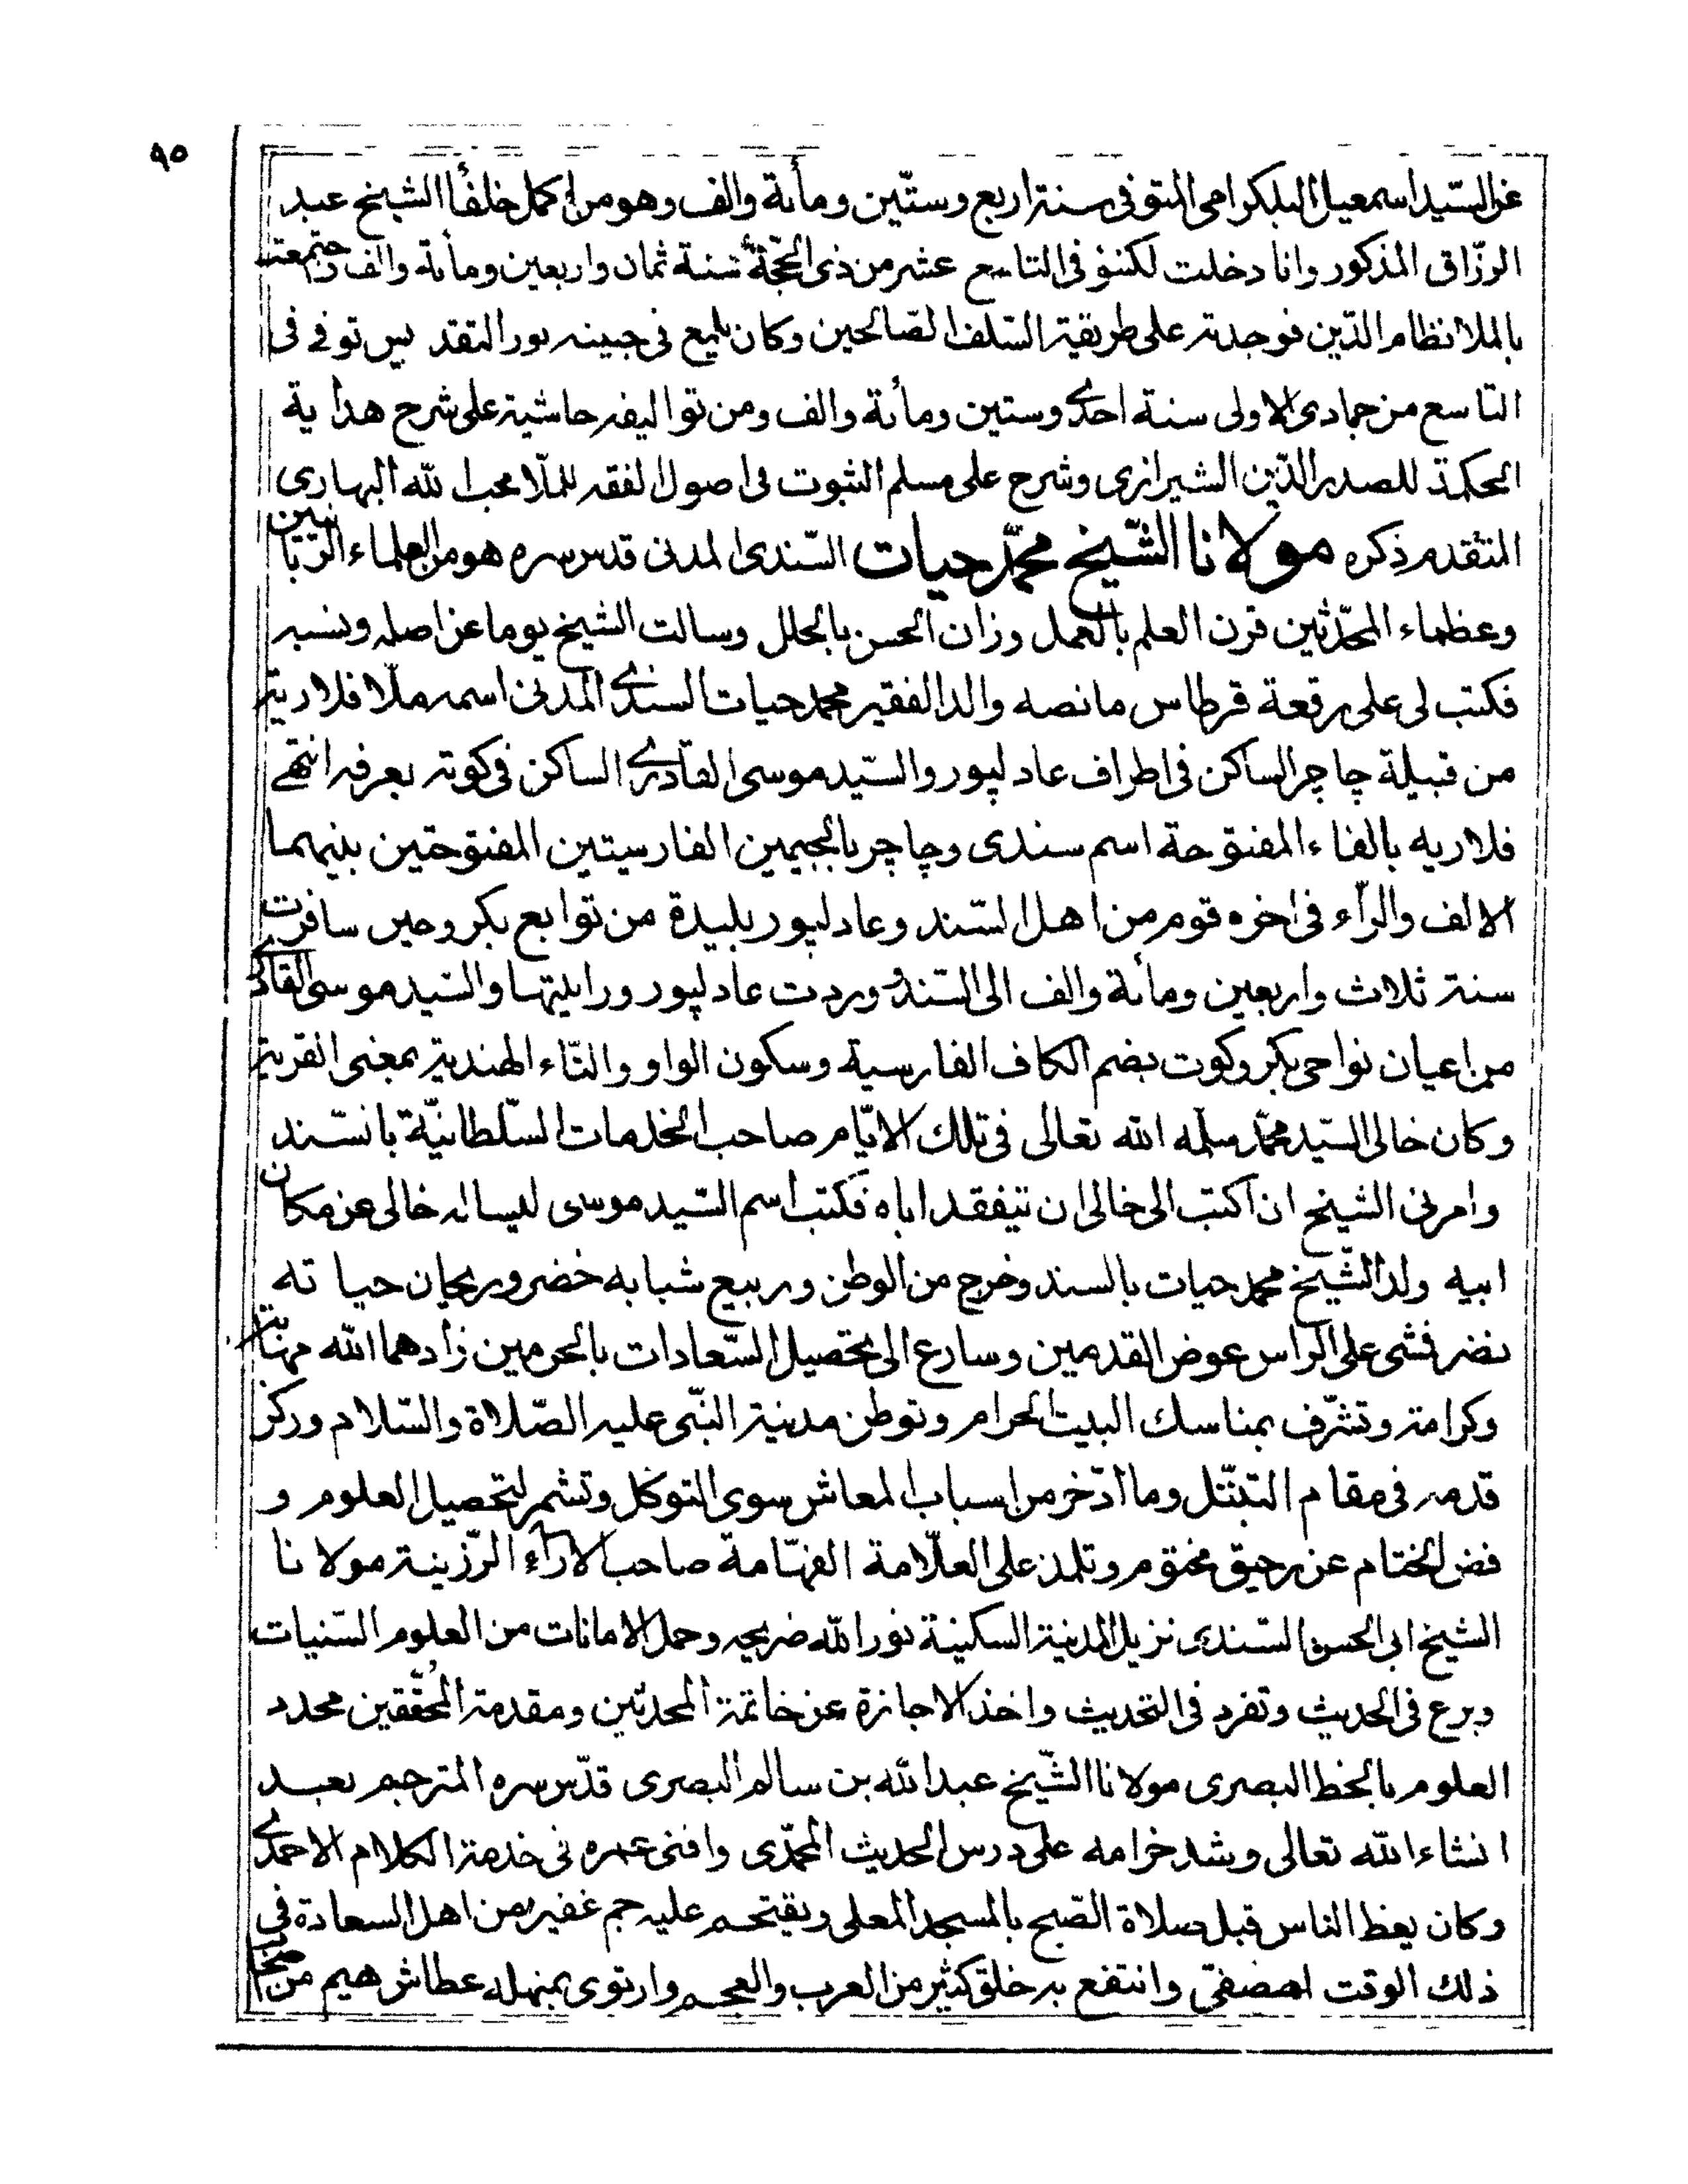 ٩٥
عن السّيد اسمعيل البلكرامى المتوفى سنة اربع وستّين ومأئة والف وهو من اكمل خلفأ الشيخ عبد
الرزّاق المذكور وانا دخلت لكنؤ فى التاسع عشر من ذى الحجّة سنة ثمان واربعين ومأئة والف واجتمعت
بالملا نظام الدّين فوجدته على طريقة السّلف الصّالحين وكان يلمع فى جبينه نور التقديس توفى فى
التاسع من جمادى الاولى سنة احدى وستين ومأئة والف ومن تواليفه حاشية على شرح هداية
الحكمة للصدر الدّين الشيرازى وشرح على مسلم الثبوت فى اصول الفقه للملّا محب الله البهارى
المتقدم ذكره مولانا الشّيخ محمّد حيات السّندى المدنى قدس سره هو من العلماء الربّانيين
وعظماء المحدّثين قرن العلم بالعمل وزان الحسن بالحلل وسالت الشيخ يوما عن اصله ونسبه
فكتب لى على رقعة قرطاس ما نصه والد الفقير محمد حيات السندى المدنى اسمه ملّا فلاريه
من قبيلة چاچر الساكن فى اطراف عادلپور والسّيد موسى القادرى الساكن فى كوته يعرفه انتهى
فلاريه بالفاء المفتوحة اسم سندى وچاچر بالجيمين الفارسيتين المفتوحتين بينهما
الالف والرّاء فى اخره قوم من اهل السّند وعادلپور بليدة من توابع بكر وحين سافرت
سنة ثلاث واربعين ومأئة والف الى السّند وردت عادلپور ورايتها والسّيد موسى القادرى
من اعيان نواحى بكر وكوت بضم الكاف الفارسية وسكون الواو والتّاء الهندية بمعنى القرية
وكان خالى السّيد محمّد سلمه الله تعالى فى تلك الايّام صاحب الخدمات السّلطانيّة بالسّند
وامرنى الشيخ ان اكتب الى خالى ان يتفقد اباه فكتب اسم السّيد موسى ليساله خالى عن مكان
ابيه ولد الشّيخ محمد حيات بالسند وخرج من الوطن وربيع شبابه خضر وريحان حياته
نضر فمشى على الراس عوض القدمين وسارع الى تحصيل السّعادات بالحرمين زادهما الله مهابة
وكرامة وتشرّف بمناسك البيت الحرام وتوطن مدينة النّبى عليه الصّلاة والسّلام وركز
قدمه فى مقام التبتّل وما ادّخر من اسباب المعاش سوى التوكل وتشمر لتحصيل العلوم و
فض الختام عن رحيق مختوم وتلمذ على العلّامة الفهّامة صاحب الاراء الرّزينة مولانا
الشيخ ابى الحسن السّندى نزيل المدينة السكينة نور الله ضريحه وحمل الامانات من العلوم السّنيات
وبرع فى الحديث وتفرد فى التحديث واخذ الاجازة عن خاتمة المحدثين ومقدمة المحقّقين مجدد
العلوم بالخط البصرى مولانا الشّيخ عبد الله بن سالم البصرى قدّس سره المترجم بعد
انشاء الله تعالى وشد خزامه على درس الحديث المحمّدى وافنى عمره فى خدمة الكلام الاحمدى
وكان يعظ الناس قبل صلاة الصّبح بالمسجد المعلى ويقتحم عليه جم غفير من اهل السعادة فى
ذلك الوقت المصفى وانتفع به خلق كثير من العرب والعجم وارتوى بمنهله عطاش هيم من